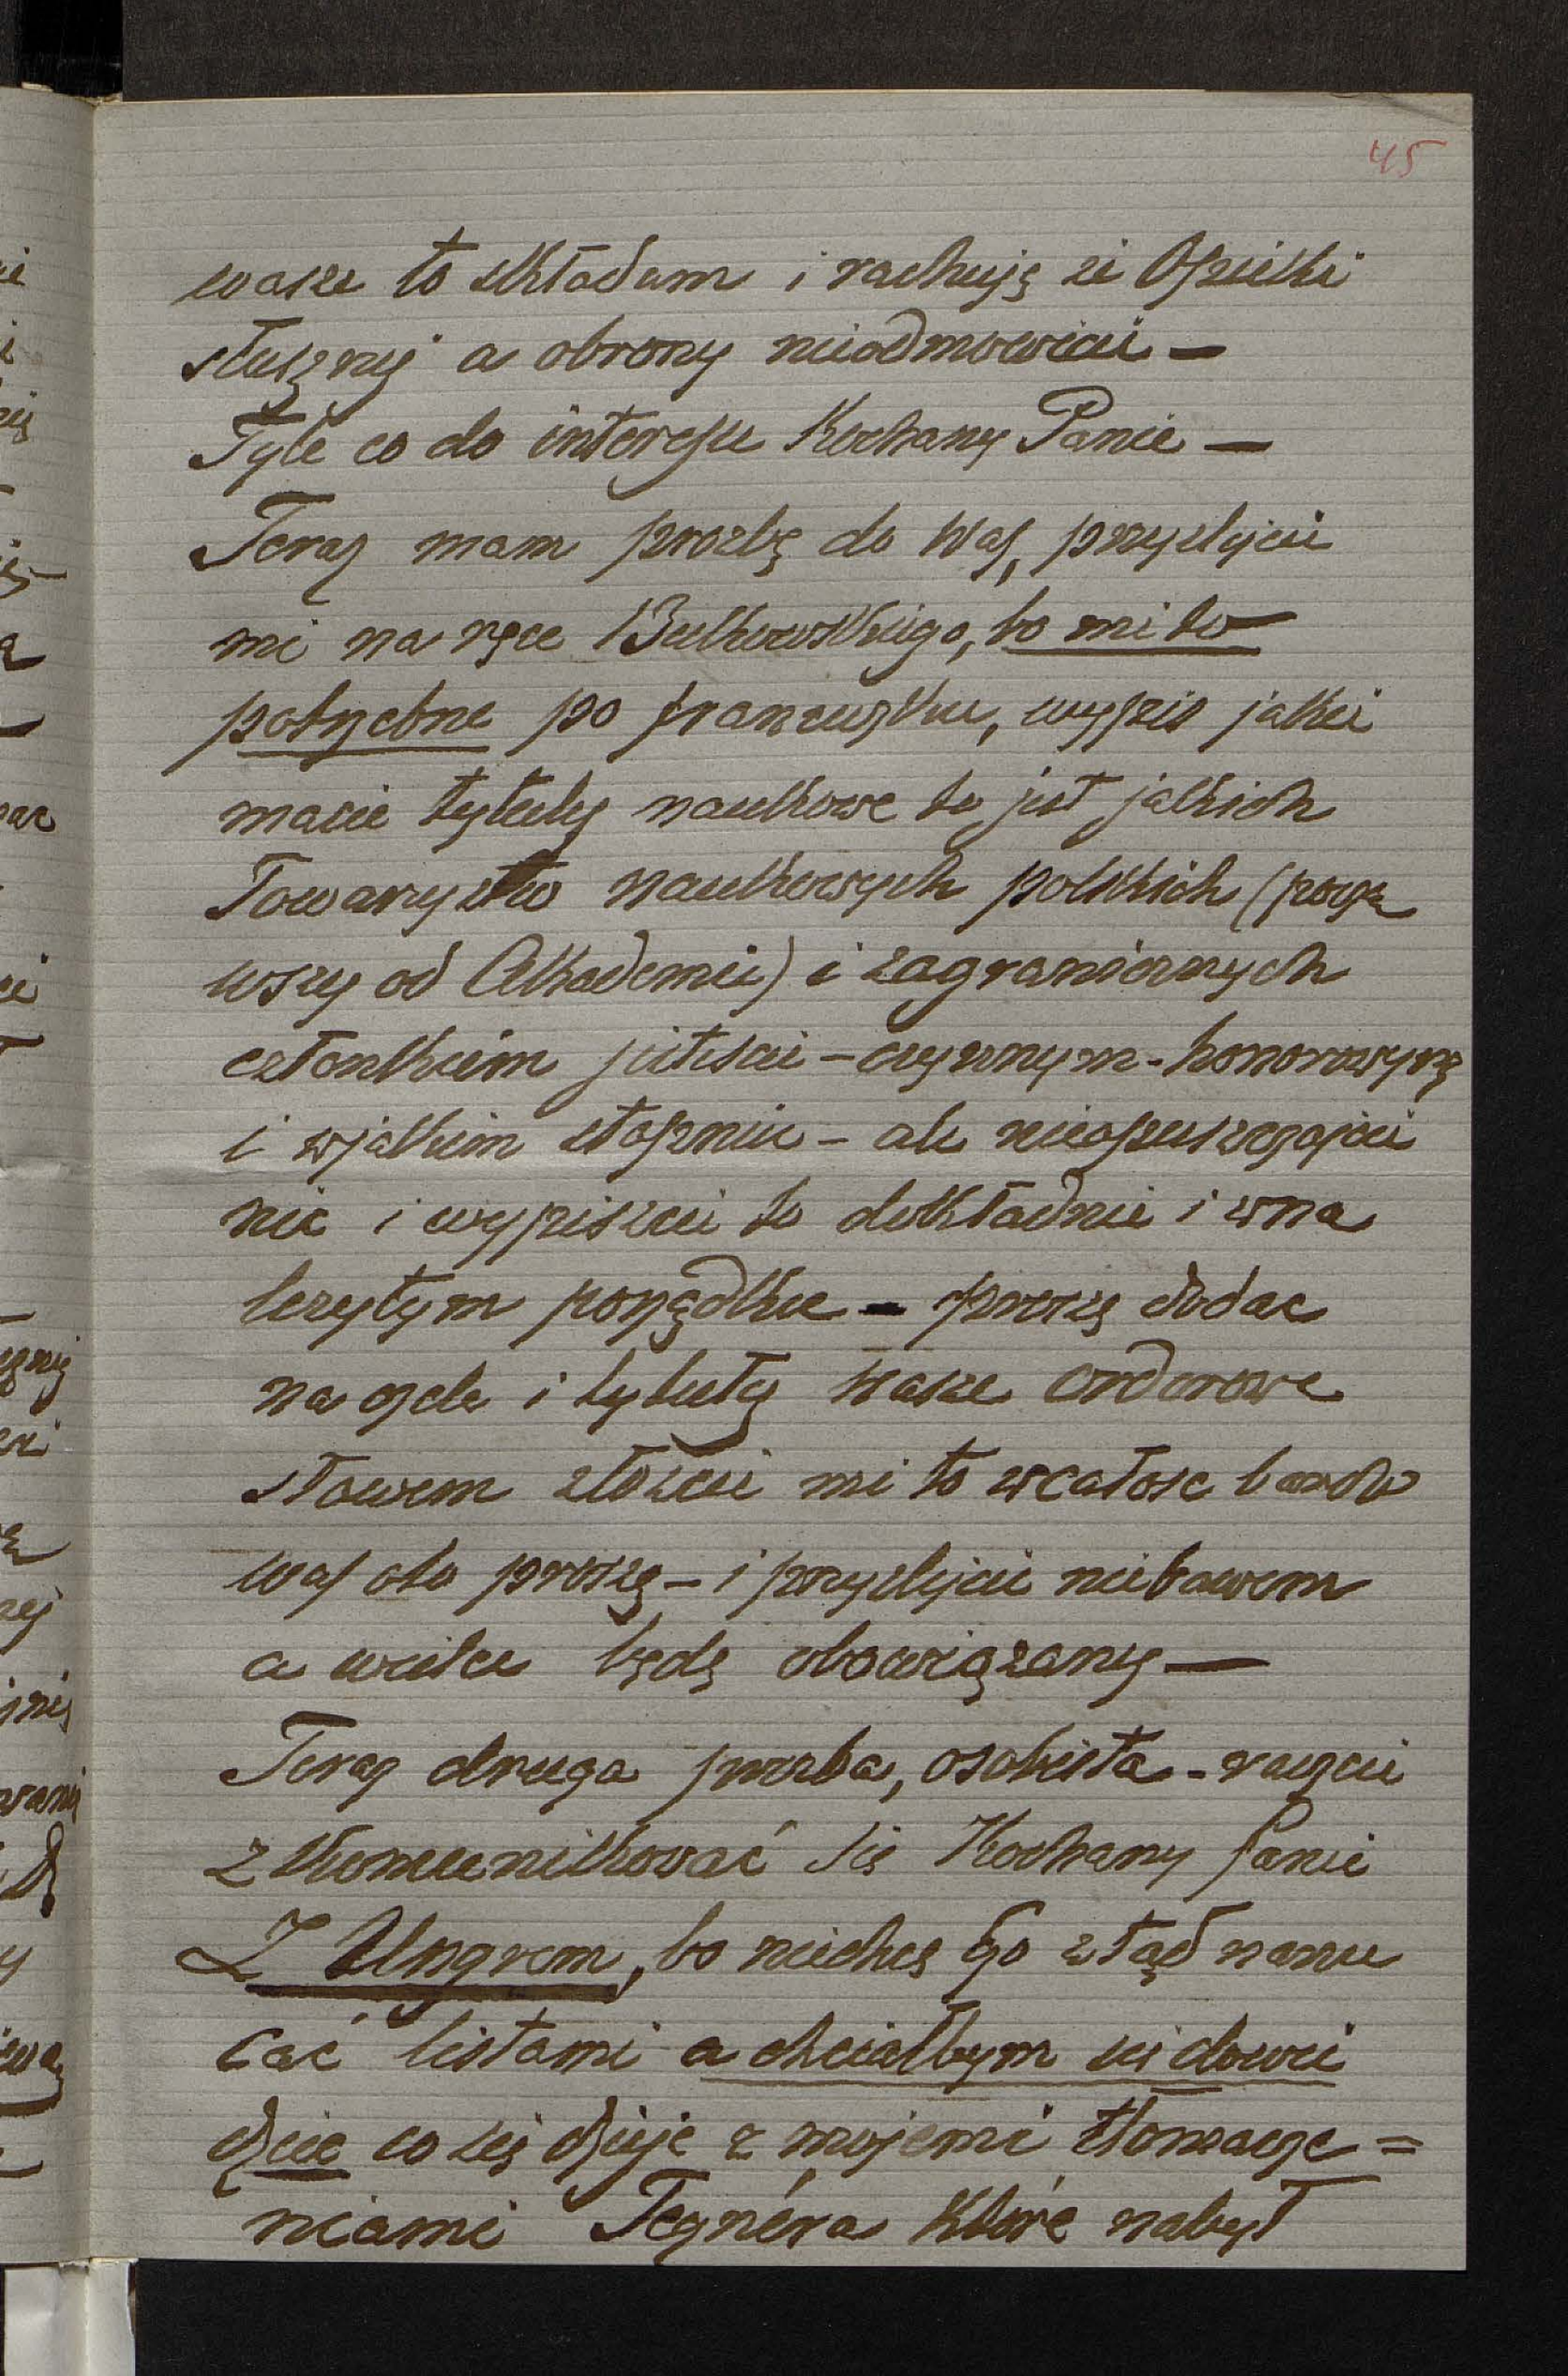 45
wasze to składam i rachuję że Opieki
słusznej a obrony nieodmówicie –
Tyle co do interesu Kochany Panie –
Teraz mam prozbę do Was, przyslijcie
mi na ręce Bukowskiego, bo mi to
potrzebne po francuzku, wypis jakie
macie tytuły naukowe to jest jakich
Towarzystw naukowych polskich (począ
wszy od Akademii) i zagranicznych
członkiem jesteście – czynnym – honorowym
i w jakim stopniu – ale nieopuszczajcie
nic i wypiszcie to dokładnie i w na
lezytym porządku – proszę dodac
na czele i tytuły Wasze orderowe
słowem złożcie mi to w całosc bardzo
was oto proszę – i przyslijcie niebawem
a wielce będę obowiązany –
Teraz druga prozba, osobista – raczcie
zkomunikować się Kochany Panie
Z Ungrem, bo niechcę Go ztąd nanu
cać listami a chciałbym się dowie
dzieć co się dzieje z mojemi tłomacze =
niami Tegnéra które nabył